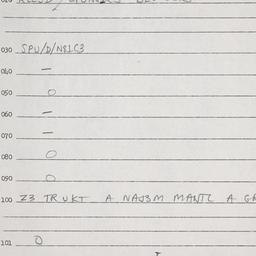 030 SPU/D/NSIC3
040 —
050 O
060 —
070 —
080 O
090 O
100 Z3 TRUKT A NAJ3M MANTL A
101 O